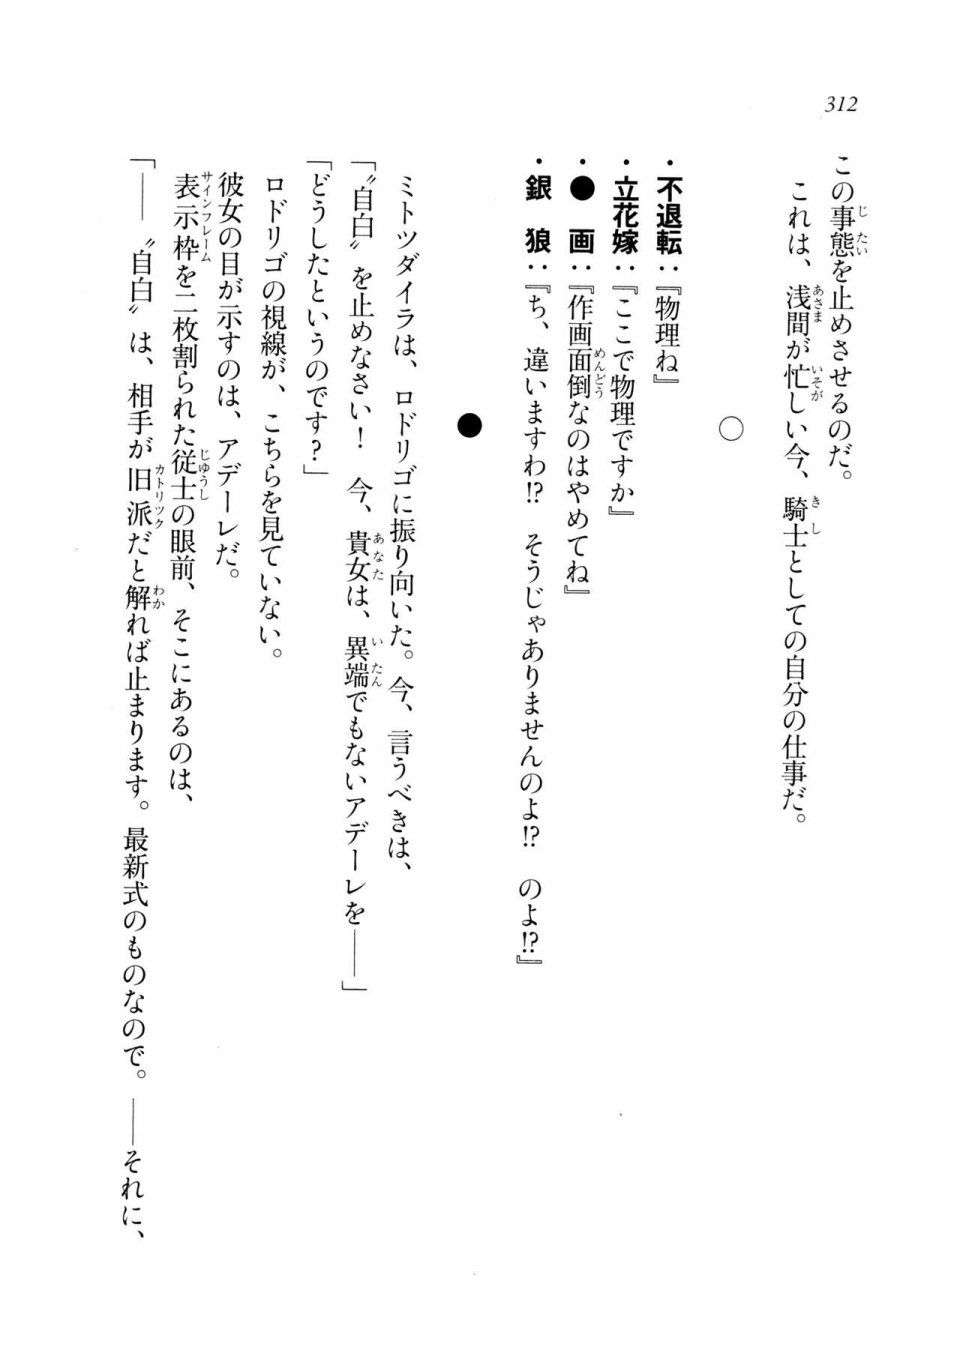 312
この事態を止めさせるのだ。
これは、浅間が忙しい今、騎士としての自分の仕事だ。
○
・不退転：『物理ね』
・立花嫁：『ここで物理ですか』
・●　画：『作画面倒なのはやめてね』
・銀　狼：『ち、違いますわ!?　そうじゃありませんのよ!?　のよ!?』
●
ミトツダイラは、ロドリゴに振り向いた。今、言うべきは、
「〝自白〟を止めなさい！　今、貴女は、異端でもないアデーレを――」
「どうしたというのです？」
ロドリゴの視線が、こちらを見ていない。
彼女の目が示すのは、アデーレだ。
表示枠を二枚割られた従士の眼前、そこにあるのは、
「――〝自白〟は、相手が旧派だと解れば止まります。最新式のものなので。――それに、